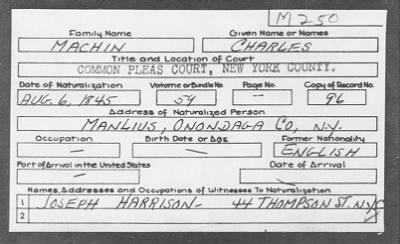 M250
Family Name Given Name or Names
MACHIN CHARLES
Title and Location of Court
COMMON PLEAS COURT, NEW YORK COUNTY.
Date of Naturalization Volume or Bundle No. Page No. Copy of Record No.
AUG. 6, 1845 59 — 96
Address of Naturalized Person
MANLIUS, ONONDAGA CO, N.Y.
Occupation Birth Date or Age Former Nationality
— — ENGLISH
Port of Arrival in the United States Date of Arrival
— —
Names, Addresses and Occupations of Witnesses To Naturalization
1 JOSEPH HARRISON- 44 THOMPSON ST. NYC
2